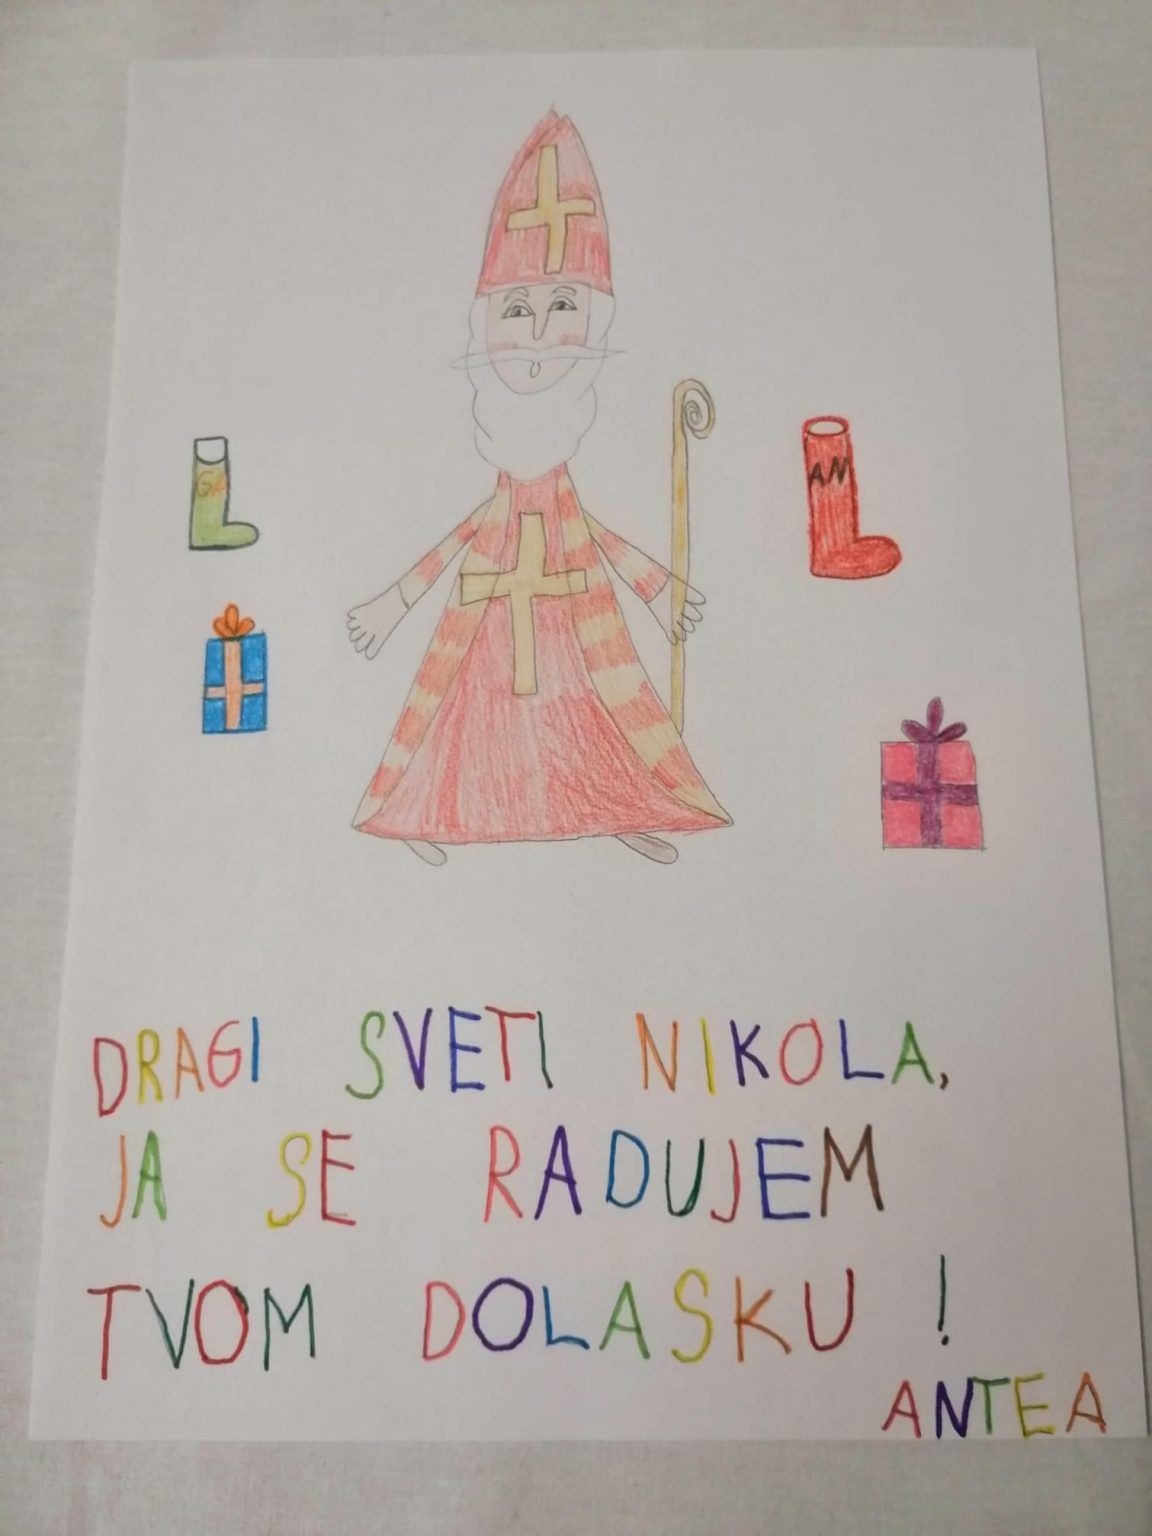 GA
AN
DRAGI SVETI NIKOLA,
JA SE RADUJEM
TVOM DOLASKU!
ANTEA